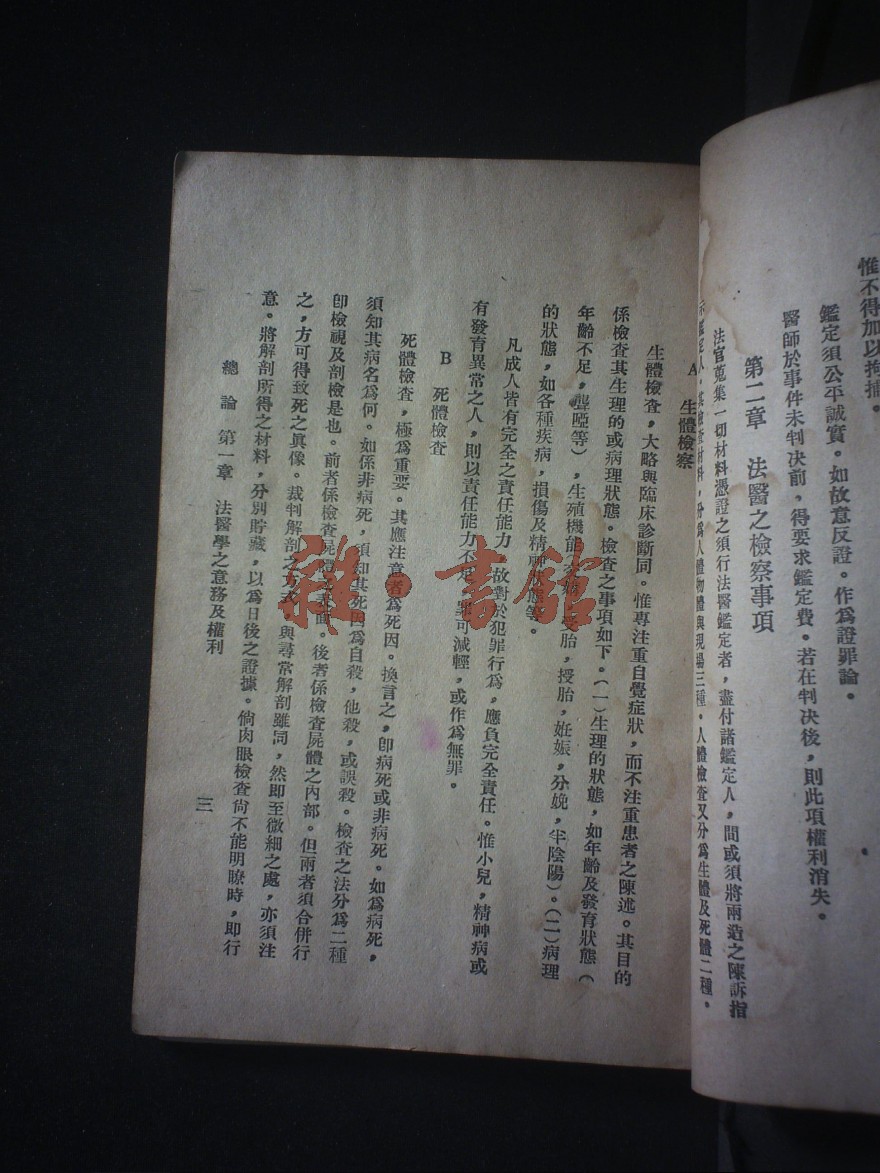 惟不得加以拘捕。
鑑定須公平誠實。如故意反證。作爲證罪論。
醫師於事件未判决前，得要求鑑定費。若在判决後，則此項權利消失。
第二章 法醫之檢察事項
法官蒐集一切材料憑證之須行法醫鑑定者，盡付諸鑑定人，間或須將兩造之陳訴指
示鑑定人，其檢查材料，分爲人體物體與現場三種。人體檢查又分爲生體及死體二種。
A 生體檢察
生體檢查，大略與臨床診斷同。惟專注重自覺症狀，而不注重患者之陳述。其目的
係檢查其生理的或病理狀態。檢查之事項如下。（一）生理的狀態，如年齡及發育狀態（
年齡不足，聾啞等），生殖機能（交媾，受胎，授胎，妊娠，分娩，半陰陽）。（二）病理
的狀態，如各種疾病，損傷及精神狀態等。
凡成人皆有完全之責任能力，故對於犯罪行爲，應負完全責任。惟小兒，精神病或
有發育異常之人，則以責任能力不足，罪可減輕，或作爲無罪。
B 死體檢查
死體檢查，極爲重要。其應注意者爲死因。換言之，卽病死或非病死。如爲病死，
須知其病名爲何。如係非病死，須知其死因爲自殺，他殺，或誤殺。檢查之法分爲二種
卽檢視及剖檢是也。前者係檢查屍體之表面。後者係檢查屍體之內部。但兩者須合併行
之，方可得致死之眞像。裁判解剖之方式，與尋常解剖雖同，然卽至微細之處，亦須注
意。將解剖所得之材料，分別貯藏，以爲日後之證據。倘肉眼檢查尙不能明瞭時，卽行
總論 第一章 法醫學之意務及權利
三
雜·書館